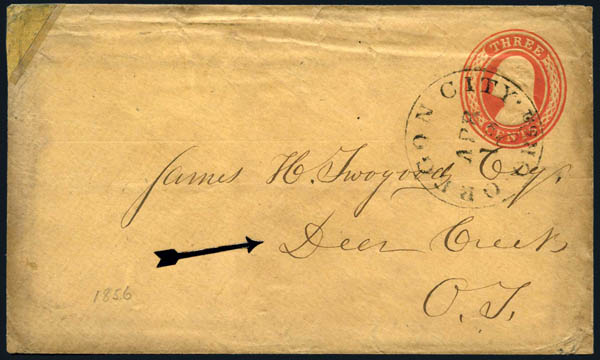 THREE
CENTS
OREGON CITY.
APR
7
James H. Twogood Esq.
Deer Creek
O.T.
1856